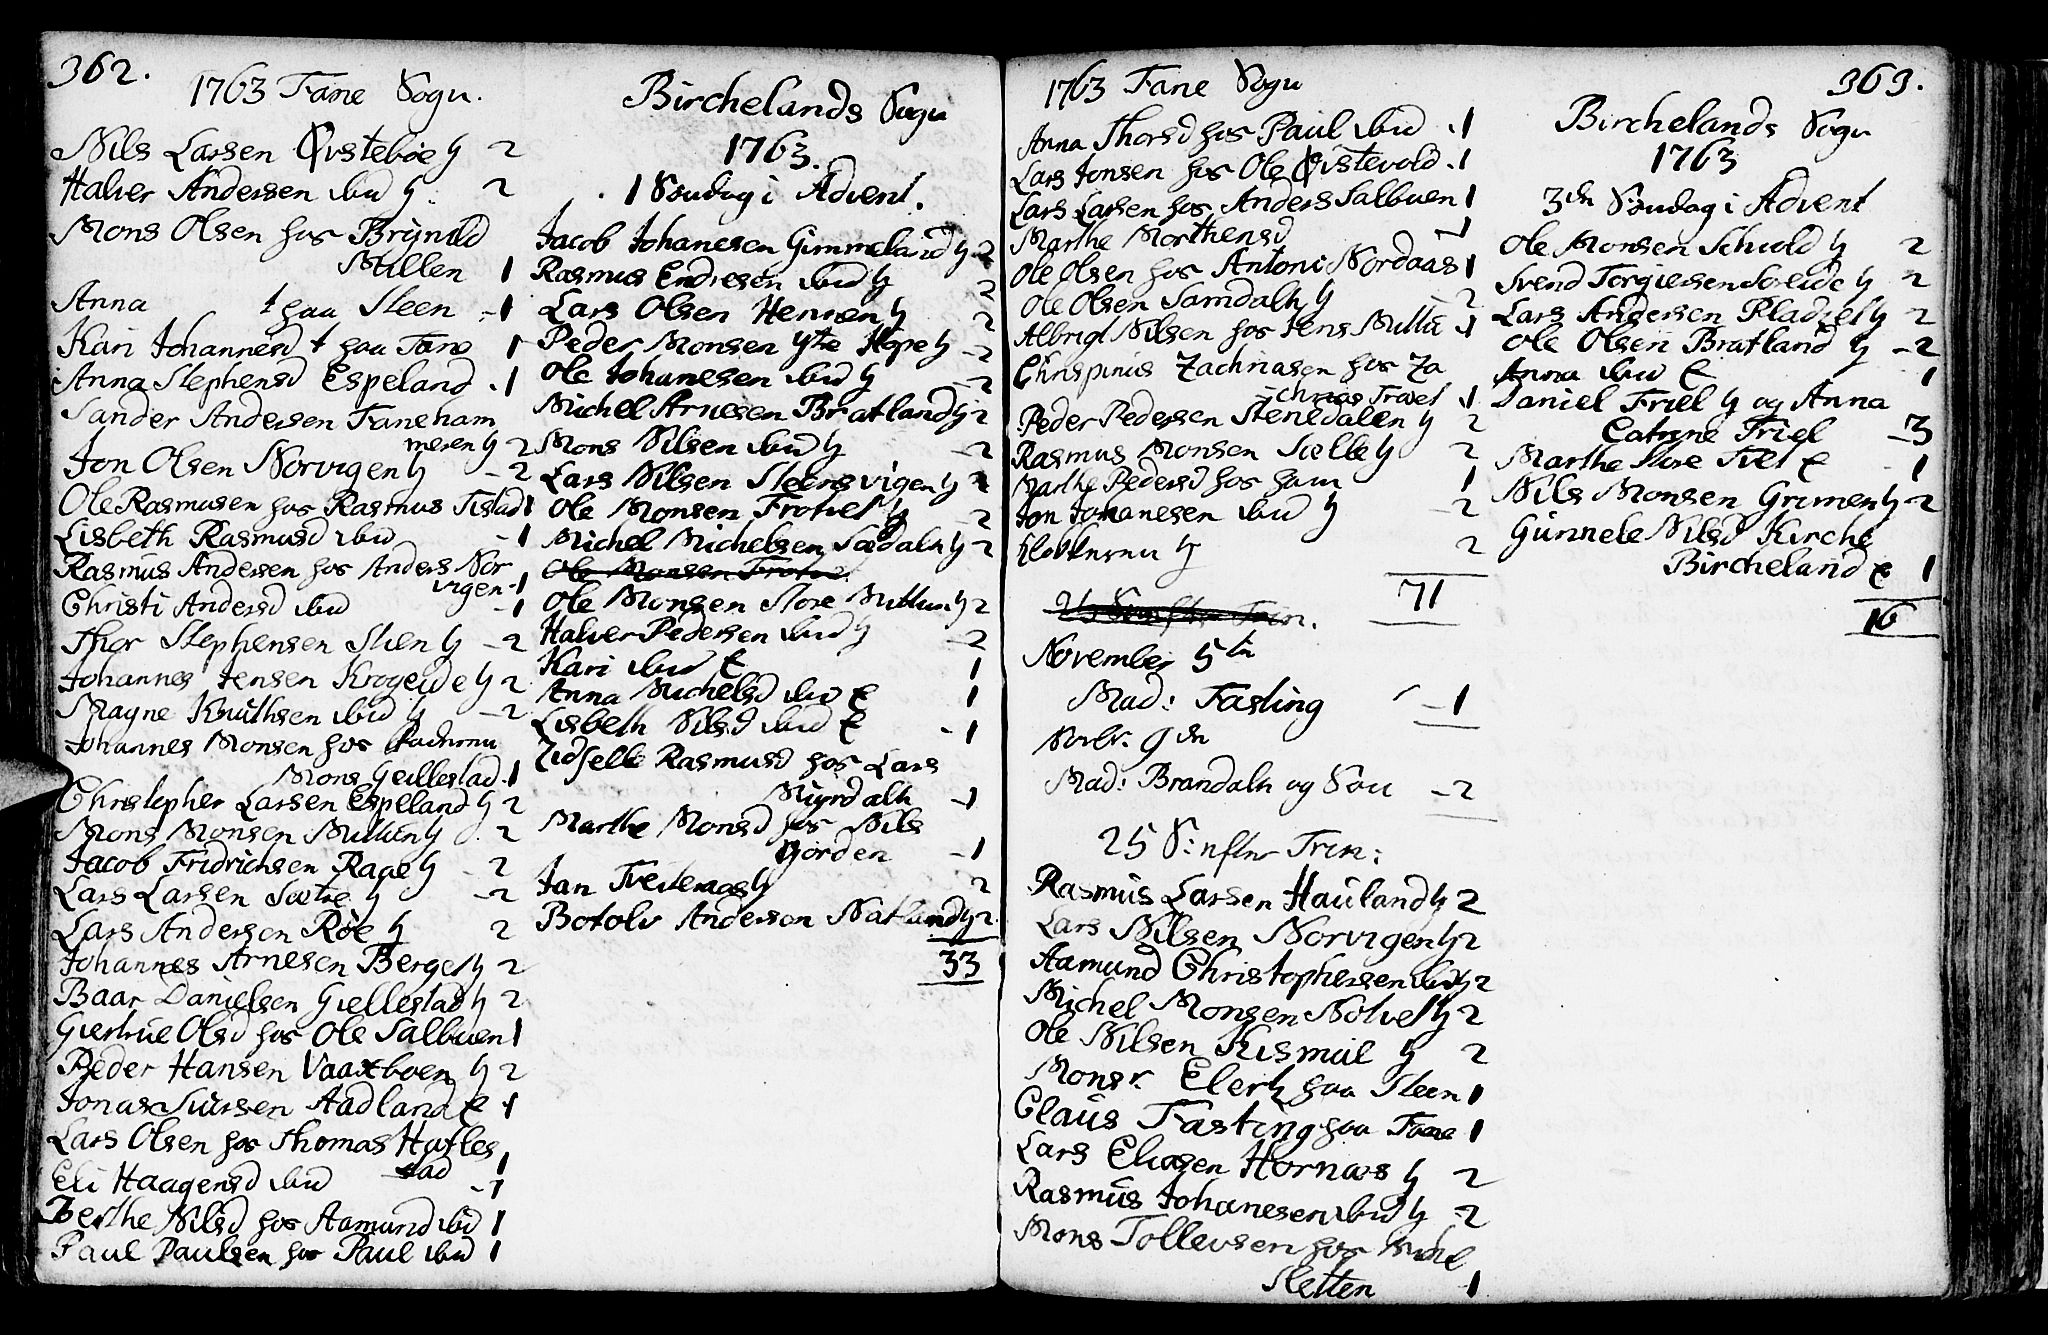 362.
1763 Fane Sogn.
Nils Larsen Øvstebøe H 2
Halver Andersen ibid H. 2
Mons Olsen hos Brynild
Millen 1
Anna t paa Steen - 1
Kari Johannesd t paa Fane 1
Anna Stephensd Espeland . 1
Sander Andersen Faneham
meren H 2
Jon Olsen Norvigen H - 2
Ole Rasmusen hos Rasmus Tistad 1
Lisbeth Rasmusd ibid - 1
Rasmus Andersen hos Anders Nor
vigen - 1
Christi Andersd ibid - 1
Thor Stephensen Stien H - 2
Johannes Jensen Krogeide H 2
Magne Knuthsen ibid H - 2
Johannes Monsen hos
Mons Geillestad . 1
Christopher Larsen Espeland H 2
Mons Monsen Millen H . 2
Jacob Fridrichsen Rage H 2
Lars Larsen Sætre H - 2
Lars Andersen Røe H 2
Johannes Arnesen Berget H 2
Baar Danielsen Giellestad H 2
Giertrue Olsd hos Ole Salbuen 1
Peder Hansen Vaaxboen H 2
Jonas Siursen Aadland E 1
Lars Olsen hos Thomas Hatles
tad 1
Eli Haagensd ibid - 1
Berthe Nilsd hos Aamund ibid 1
Paul Paulsen hos Paul ibid 1
Birchelands Sogn
1763.
1 Søndag i Advent.
Jacob Johanesen Gimmeland H 2
Rasmus Endresen ibid H 2
Lars Olsen Hennen H 2
Peder Monsen Ytre Hope H - 2
Ole Johanesen ibid H - 2
Michel Arnesen Bratland H 2
Mons Nilsen ibid H - 2
Lars Nilsen Steensvigen H 2
Ole Monsen Frotvet H - 2
Michel Michelsen Sædalen H 2
Ole Monsen Frotve
Ole Monsen Store Millum H 2
Halver Pedersen ibid H - 2
Kari ibid E 1
Anna Michelsd ibid E 1
Lisbeth Nilsd ibid E - 1
Zidselle Rasmusd hos Lars
Myrdalen - 1
Marthe Monsd hos Nils
Hiorden - 1
Jan Tveiteraas H 2
Botolv Andersen Natland H 2.
33
1763 Fane Sogn
Anna Thorsd hos Paul ibid . 1
Lars Jonsen hos Ole Øvstevold . 1
Lars Larsen hos Anders Salbuen 1
Marthe Morthensd - 1
Ole Olsen hos Antoni Nordaas 1
Ole Olsen Samdalen H - 2
Albrigt Nilsen hos Jens Millu . 1
Chrispinus Zachriasen hos Za
chrias Trovet . 1
Peder Pedersen Stenedalen H 2
Rasmus Monsen Sælle H 2
Marthe Pedersd hos ham 1
Jon Johanesen ibid H - 2
Klokkeren H 2
71
November 5te
Mad: Fasting - 1
Novbr. 9de
Mad: Brandalen og Søn - 2
25 S: efter Trin:
Rasmus Larsen Hauland H 2
Lars Nilsen Norvigen H 2
Aamund Christophersen ibid H 2
Michel Monsen Notvet H 2
Ole Nilsen Kismul H 2
Monsr. Elertz paa Steen 1
Claus Fasting paa Fane 1
Lars Eliasen Hornæs H 2
Rasmus Johanesen ibid H - 2
Mons Tollevsen hos
Sletten - 1
363.
Birchelands Sogn
1763
3de Søndag i Advent
Ole Monsen Schiold H 2
Svend Torgiersen Søreide H 2
Lars Andersen Pladset H 2
Ole Olsen Bratland H - 2
Anna ibid E 1
Daniel Friel H og Anna
Catrine Friel - 3
Marthe Store Tvet E - 1
Nils Monsen Grimen H - 2
Gunnele Nilsd Kirche
Bircheland E 1
16